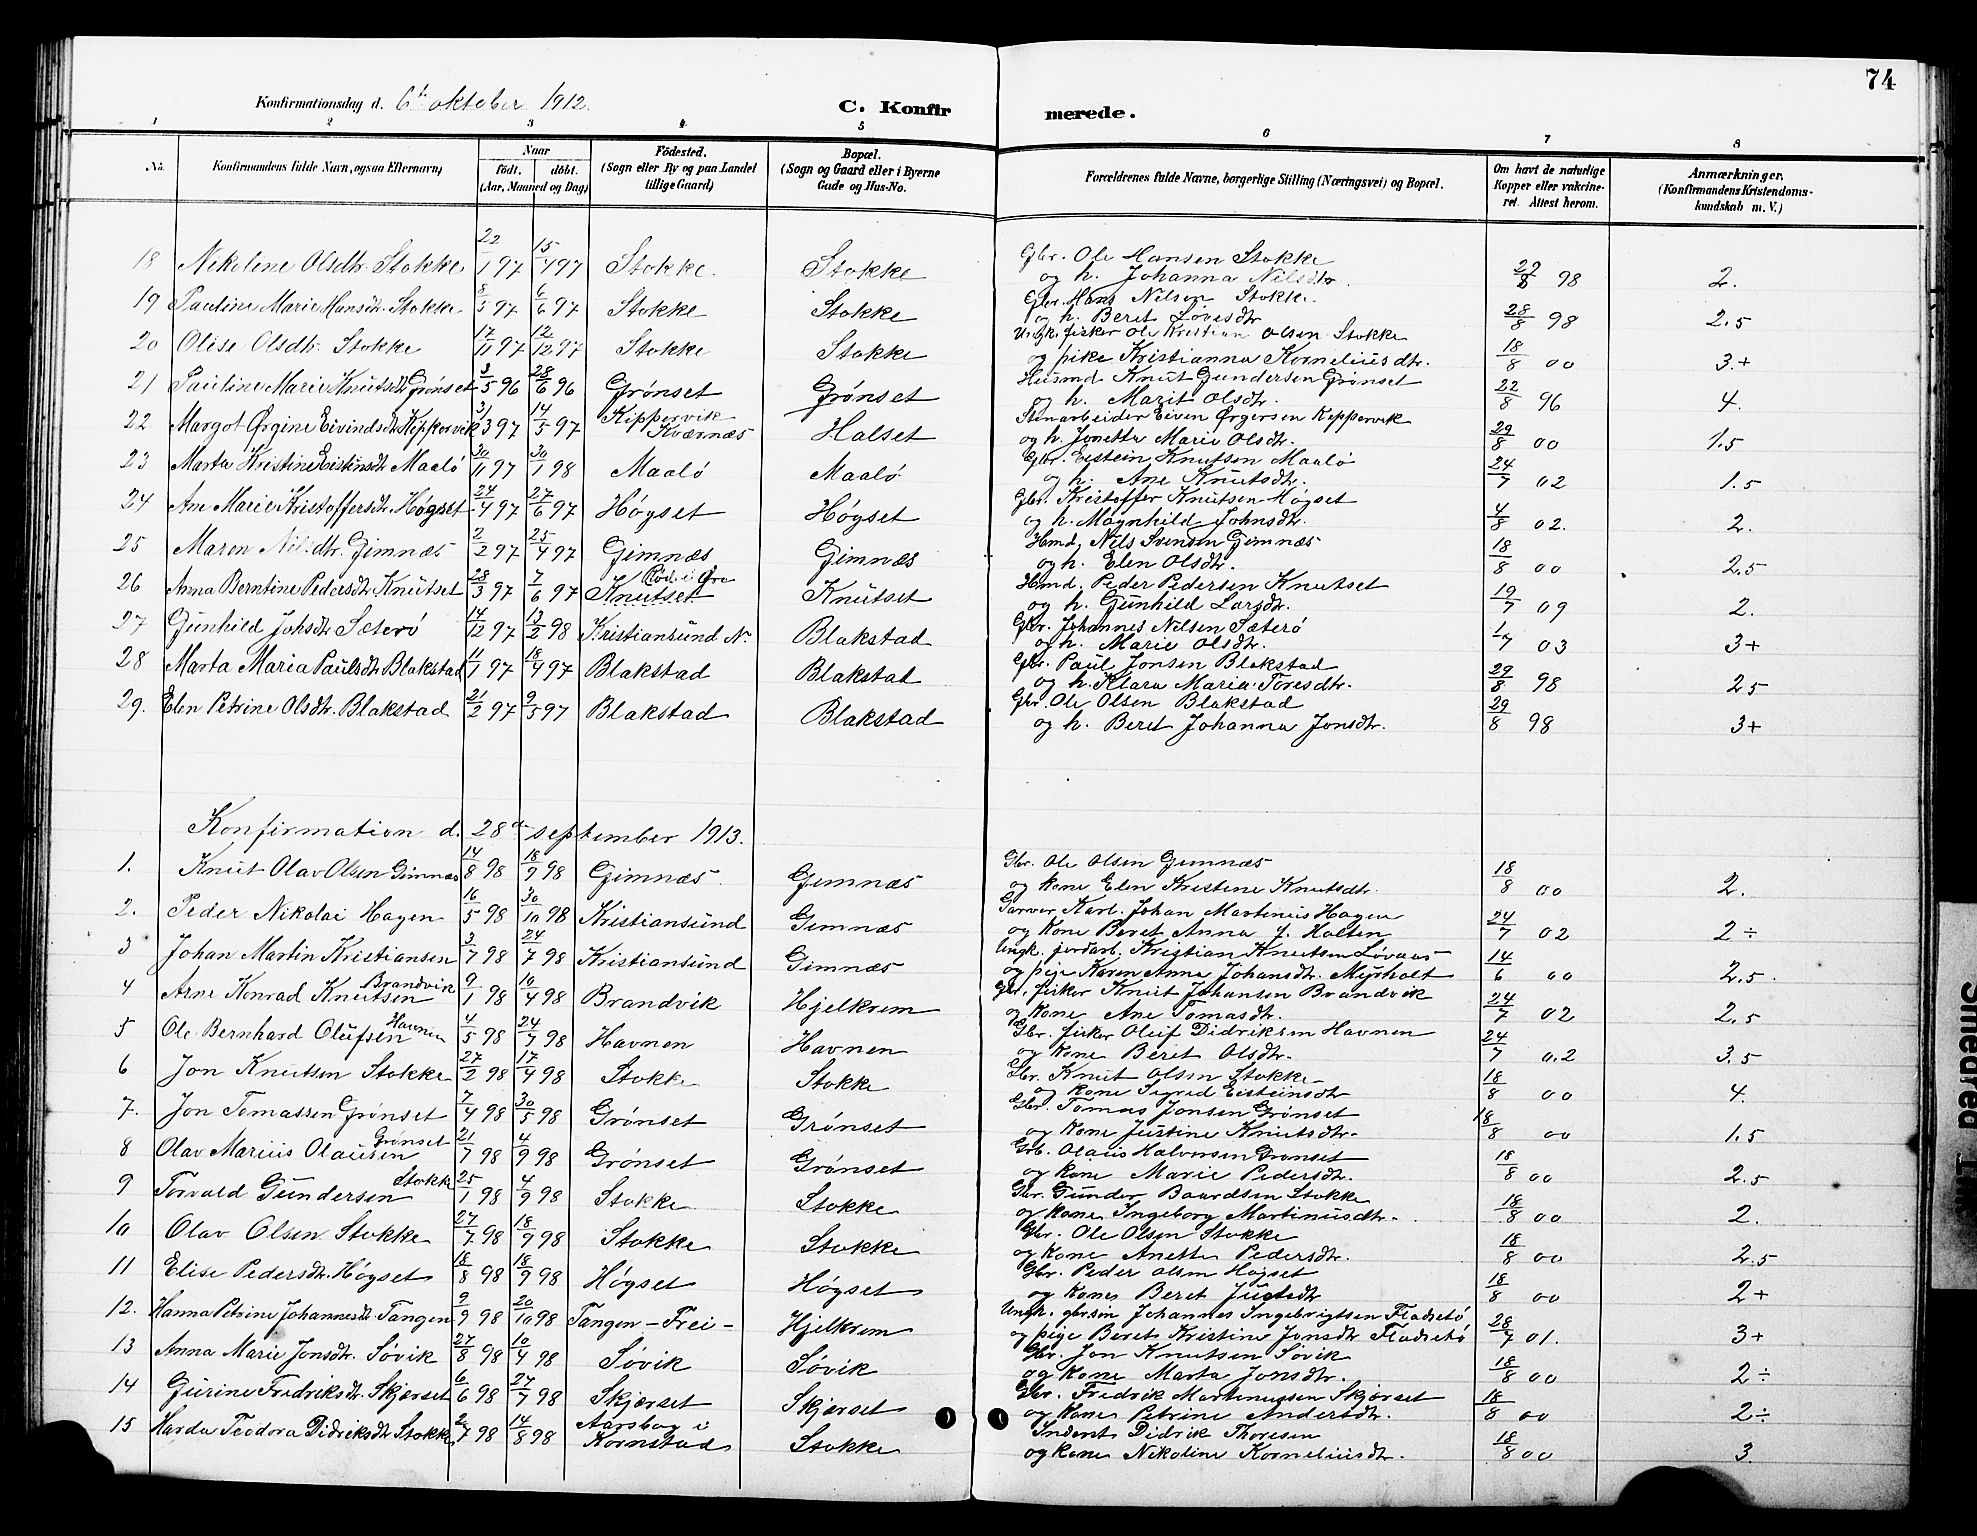 74
Konfirmationsdag d. 6te oktober 1912.
C. Konfirmerede.
1 2 3 4 5 6 7 8
No.
Konfirmandens fulde Navn, ogsaa Efternavn)
Naar
födt. döbt.
(Aar, Maaned og Dag)
Födested.
(Sogn eller By og paa Landet tillige Gaard)
Bopæl.
(Sogn og Gaard eller i Byerne Gade og Hus-No.
Forældrenes fulde Navne, borgerlige Stilling (Næringsvei) og Bopæl.
Om havt de naturlige Kopper eller vakcineret. Attest herom.
Anmærkninger.
(Konfirmandens Kristendomskundskab m. V.)
18 Nikoline Olsdtr. Stokke 22/1 97 15/4 97 Stokke. Stokke Gbr. Ole Hansen Stokke
og h. Johanna Nilsdtr. 29/8 98 2.
19 Pauline Marie Hansdtr. Stokke 8/5 97 6/6 97 Stokke Stokke Gbr. Hans Nilsen Stokke.
og h. Beret Lovesdtr 28/8 98 2.5
20 Olise Olsdtr. Stokke 17/11 97 12/12 97 Stokke Stokke Ungk. fisker Ole Kristian Olsen Stokke
og pike Kristianna Kornelius dtr. 18/8 00 3+
21 Pauline Marie Knutsdtr Grønset 3/5 96 28/6 96 Grønset Grønset Husmd Knut Gundersen Grønset
og h. Marit Olsdtr. 22/8 96 4.
22 Margot Ørgine Eivindsdtr Kippervik 3/3 97 14/5 97 Kippervik Kværnæs Halset Stenarbeider Eiven Ørgersen Kippervik
og h. Jonetta Marie Olsdtr. 29/8 00 1.5
23 Marta Kristine Eistinsdtr Maalö 30/11 97 30/1 98 Maalö Maalö Gbr. Eistein Knutsen Maalö
og h. Ane Knutsdtr. 24/7 02 1.5
24 An Marie Kristoffersdtr Høgset 24/4 97 27/6 97 Høgset Høgset Gbr. Kristoffer Knutsen Høgset
og h. Magnhild Johnsdtr. 4/8 02. 2.
25 Maren Nilsdtr. Gimnæs 2/2 97 25/4 97 Gimnæs Gimnæs Hmd. Nils Svensen Gimnæs
og h. Elen Olsdtr. 18/8 00 2.5
26 Anna Berntine Pedersdtr Knutset 28/3 97 7/6 97 Rød i Øre Knutset Knutset Hmd. Peder Pedersen Knutset
og h. Gunhild Larsdtr. 19/7 09 2.
27 Gunhild Johsdtr Sæterö 14/12 97 13/2 98 Kristiansund N. Blakstad Gbr. Johannes Nilsen Sæterö
og h. Marie Olsdtr. 1/7 03 3+
28 Marta Maria Paulsdtr Blakstad 11/1 97 18/4 97 Blakstad Blakstad Gbr. Paul Jonsen Blakstad
og h. Klara Maria Toresdtr. 29/8 98 2.5
29. Elen Petrine Olsdtr. Blakstad 21/2 97 9/5 97 Blakstad Blakstad Gbr. Ole Olsen Blakstad
og h. Beret Johanna Jonsdtr. 29/8 98 3+
Konfirmation d. 28de september 1913.
1. Knut Olav Olsen Gimnæs 14/8 98 18/9 98 Gimnæs. Gimnæs Gbr. Ole Olsen Gimnæs
og kone Elen Kristine Knutsdtr. 18/8 00 2.
2. Peder Nikolai Hagen 16/5 98 30/10 98 Kristiansund Gimnæs Garver Karl Johan Martinius Hagen
og kone Beret Anna J. Holten 24/7 02 2÷
3 Johan Martin Kristiansen 3/7 98 24/7 98 Kristiansund Gimnæs Ungk. jordarb. Kristian Knutsen Løvaas
og pige Karen Anna Johansdtr. Myrholt 14/6 00 2.5.
4 Arne Konrad Knutsen Brandvik 9/1 98 10/4 98 Brandvik Hjelkrem Gbr. fisker Knut Johansen Brandvik
og kone Ane Tomasdtr. 24/7 02 2.5
5 Ole Bernhard Olufsen Havnen 4/5 98 24/7 98 Havnen Havnen Gbr. fisker Oluf Didriksen Havnen
og kone Beret Olsdtr. 24/7 0.2 3.5
6 Jon Knutsen Stokke 27/2 98 17/4 98 Stokke Stokke Gbr. Knut Olsen Stokke
og kone Sigrid Eisteinsdtr 18/8 00 4.
7. Jon Tomassen Grønset 7/4 98 30/5 98 Grønset Grønset Gbr. Tomas Jonsen Grønset
og kone Justine Knutsdtr. 18/8 00 1.5
8 Olav Marius Olausen Grønset 21/7 98 4/9 98 Grønset Grønset Grb. Olaus Halvorsen Grønset
og kone Marie Pedersdtr. 18/8 00 2.5
9 Torvald Gundersen Stokke 25/1 98 4/9 98 Stokke Stokke Gbr. Gunder Baardsen Stokke
og kone Ingeborg Martinusdtr. 18/8 00 2.
10 Olav Olsen Stokke 27/7 98 18/9 98 Stokke Stokke Gbr. Ole Olsen Stokke
og kone Anette Pedersdtr. 18/8 00 2.5
11 Elise Pedersdtr. Høgset 18/8 98 18/9 98 Høgset Høgset Gbr. Peder Olsen Høgset
og kone Beret Justsdtr 18/8 00 2+
12. Hanna Petrine Johannesdtr. Tangen 9/9 98 20/10 98 Tangen - Frei - Hjelkrem Ungk. gbr.søn Johannes Ingebrigtsen Fladsetö
og pige Beret Kristine Jonsdtr Fladsetö 28/7 01. 3+
13 Anna Marie Jonsdtr. Søvik 27/8 98 10/4 98 Søvik Søvik Gbr. Jon Knutsen Søvik
og kone Marta Jonsdtr. 18/8 00 2÷
14 Gurine Fredriksdtr. Skjerset 6/6 98 27/7 98 Skjerset Skjerset Gbr. Fredrik Martinussen Skjerset
og kone Petrine Andersdtr. 18/8 00 2÷
15 Harda Teodora Didriksdtr Stokke 2/7 98 14/8 98 Aarsbog i Kornstad Stokke Inderst Didrik Thoresen
og kone Nikoline Korneliusdtr. 18/8 00 3.